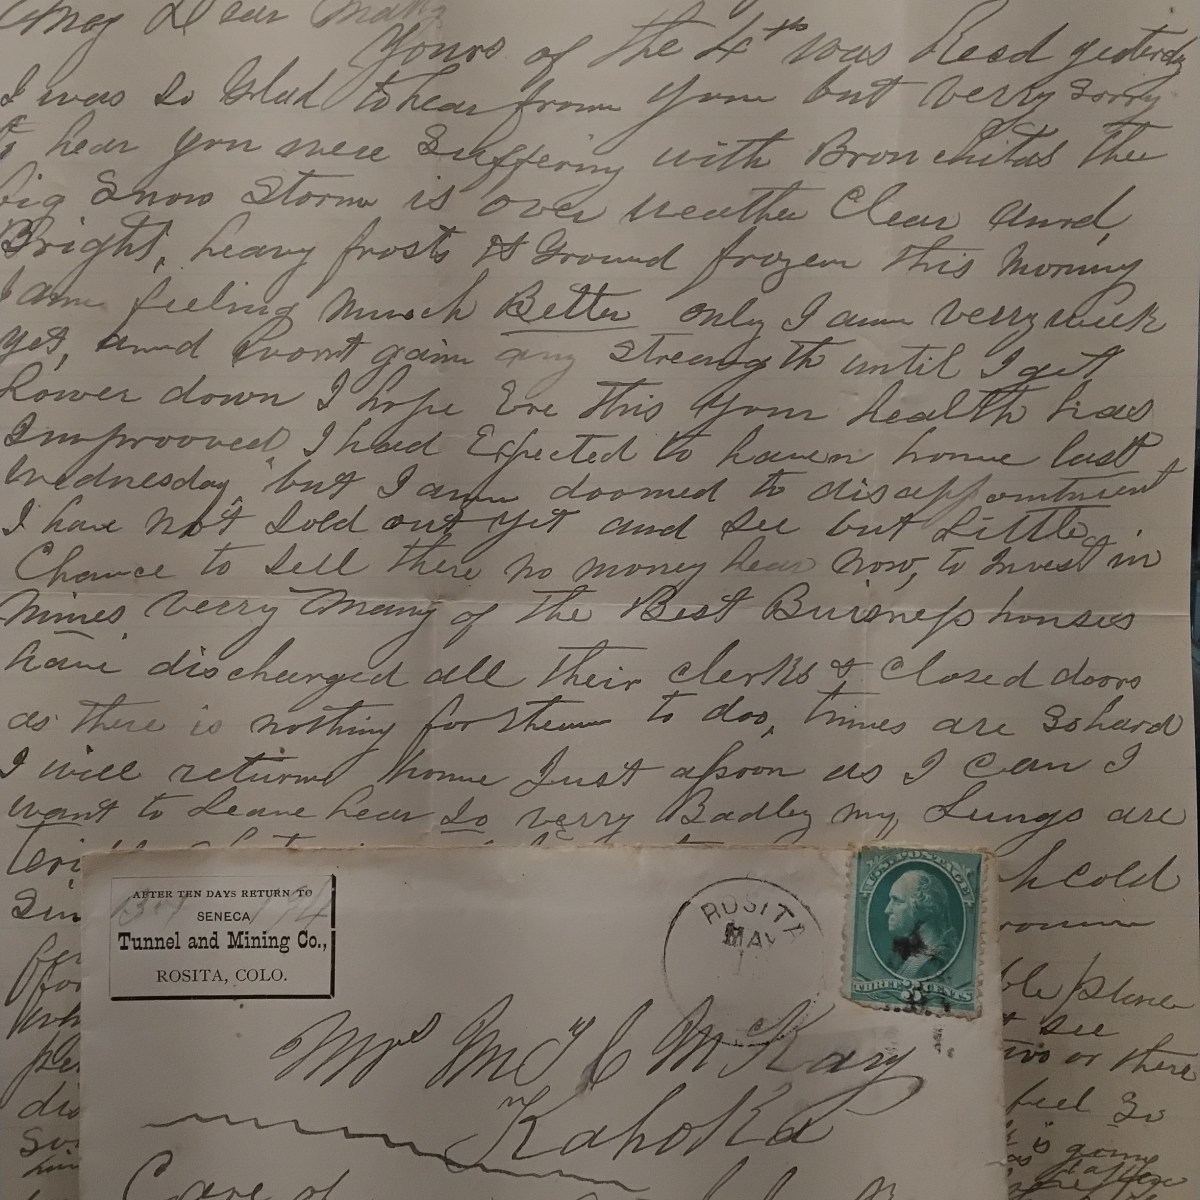 My Dear Mary
Yours of the 4th was Recd yesterdy
I was so Glad to hear from you but verry sorry
to hear you were Suffering with Bronchitas the
big Snow Storm is over weather Clear and
Bright, heavy frosts & Ground frozen this morning
I am feeling Much Better only I am verry week
yet, and wont gain any streangth until I get
Lower down I hope Ere this your health has
Improoved, I had Expected to haven home last
Wednesday, but I am doomed to disappointment
I have not sold out yet and see but Little
Chance to sell there no money hear now, to Invest in
mines verry Many of the Best Buisness houses
have discharged all their clerks & Closed doors
as there is nothing for them to doo, times are so hard
I will return home Just as soon as I can I
want to Leave hear So verry Badley my Lungs are
cold
ble place
see
two or there
feel So
is going
AFTER TEN DAYS RETURN TO
SENECA
Tunnel and Mining Co.,
ROSITA, COLO.
ROSITA
MAY
U.S. POSTAGE
THREE 3 CENTS
Mrs M C McKay
Kahoka
Care of